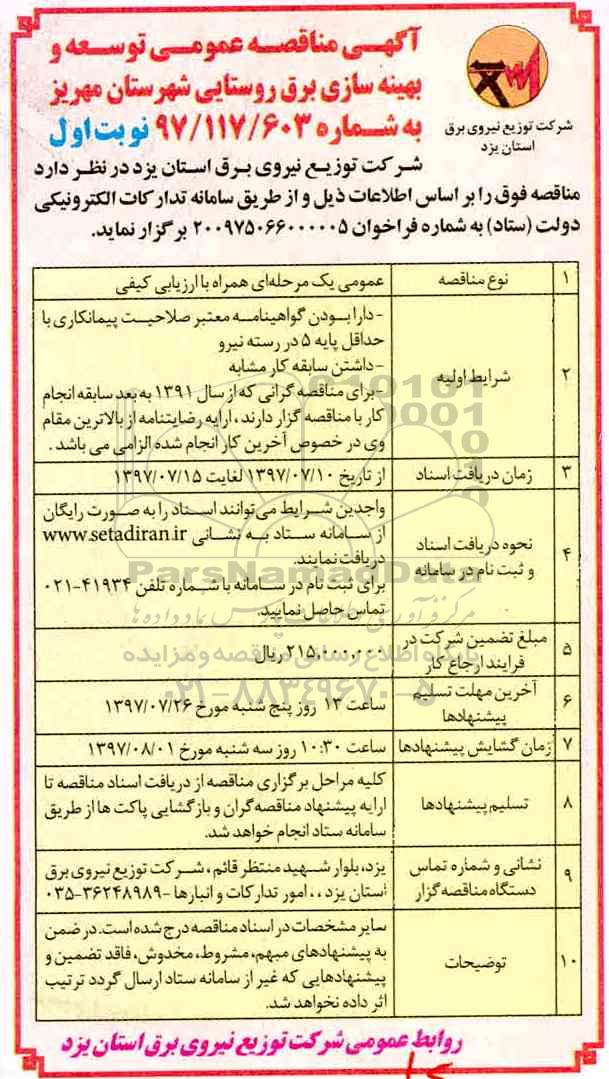 آگهی مناقصه عمومی توسعه و
بهینه سازی برق روستایی شهرستان مهریز
به شماره ۹۷/۱۱۷/۶۰۳ نوبت اول
شرکت توزیع نیروی برق
استان یزد
شرکت توزیع نیروی برق استان یزد در نظر دارد
مناقصه فوق را بر اساس اطلاعات ذیل و از طریق سامانه تدارکات الکترونیکی
دولت (ستاد) به شماره فراخوان ۲۰۰۹۷۵۰۶۶۰۰۰۰۰۵ برگزار نماید.
۱ نوع مناقصه عمومی یک مرحله‌ای همراه با ارزیابی کیفی
۲ شرایط اولیه
- دارا بودن گواهینامه معتبر صلاحیت پیمانکاری با
حداقل پایه ۵ در رسته نیرو
- داشتن سابقه کار مشابه
- برای مناقصه گرانی که از سال ۱۳۹۱ به بعد سابقه انجام
کار با مناقصه گزار دارند، ارایه رضایتنامه از بالاترین مقام
وی در خصوص آخرین کار انجام شده الزامی می باشد.
۳ زمان دریافت اسناد از تاریخ ۱۳۹۷/۰۷/۱۰ لغایت ۱۳۹۷/۰۷/۱۵
۴ نحوه دریافت اسناد
و ثبت نام در سامانه
واجدین شرایط می‌توانند اسناد را به صورت رایگان
از سامانه ستاد به نشانی www.setadiran.ir
دریافت نمایند.
برای ثبت نام در سامانه با شماره تلفن ۴۱۹۳۴-۰۲۱
تماس حاصل نمایید.
۵ مبلغ تضمین شرکت در
فرایند ارجاع کار
۲۱۵,۰۰۰,۰۰۰ ریال
۶ آخرین مهلت تسلیم
پیشنهادها
ساعت ۱۳ روز پنج شنبه مورخ ۱۳۹۷/۰۷/۲۶
۷ زمان گشایش پیشنهادها ساعت ۱۰:۳۰ روز سه شنبه مورخ ۱۳۹۷/۰۸/۰۱
۸ تسلیم پیشنهادها
کلیه مراحل برگزاری مناقصه از دریافت اسناد مناقصه تا
ارایه پیشنهاد مناقصه‌گران و بازگشایی پاکت ها از طریق
سامانه ستاد انجام خواهد شد.
۹ نشانی و شماره تماس
دستگاه مناقصه‌گزار
یزد، بلوار شهید منتظر قائم، شرکت توزیع نیروی برق
استان یزد ،، امور تدارکات و انبارها -۳۶۲۴۸۹۸۹-۰۳۵
۱۰ توضیحات
سایر مشخصات در اسناد مناقصه درج شده است. در ضمن
به پیشنهادهای مبهم، مشروط، مخدوش، فاقد تضمین و
پیشنهادهایی که غیر از سامانه ستاد ارسال گردد ترتیب
اثر داده نخواهد شد.
روابط عمومی شرکت توزیع نیروی برق استان یزد
ParsNamadData
پایگاه اطلاع رسانی مناقصه و مزایده
۰۲۱-۸۸۳۴۹۶۷۰-۵